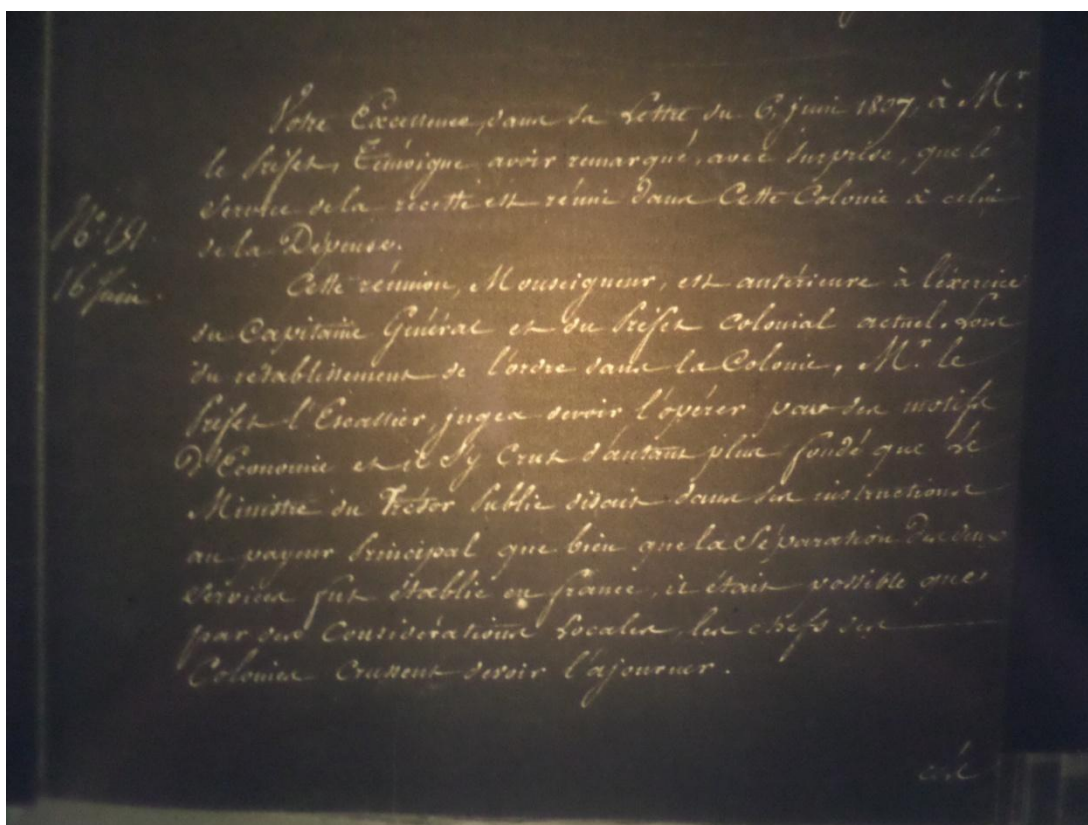 Votre Excellence, dans sa Lettre du 6, juin 1807, à Mr.
le Préfet, Témoigne avoir remarqué, avec surprise, que le
service de la recette est réuni dans Cette Colonie à celui
de la Dépense.
No. 191.
16 Juin.
Cette réunion, Monseigneur, est antérieure à l'exercice
du Capitaine Général et du Préfet colonial actuel. Lors
du rétablissement de l'ordre dans la Colonie, Mr. le
Préfet l'Escallier jugea devoir l'opérer par des motifs
D'Economie et il s'y crut d'autant plus fondé que le
Ministre du Trésor Public disait dans ses instructions
au payeur Principal que bien que la Séparation Des deux
Services fut établie en france, il était possible que
par des Considérations Locales, les chefs des
Colonies crussent devoir l'ajourner.